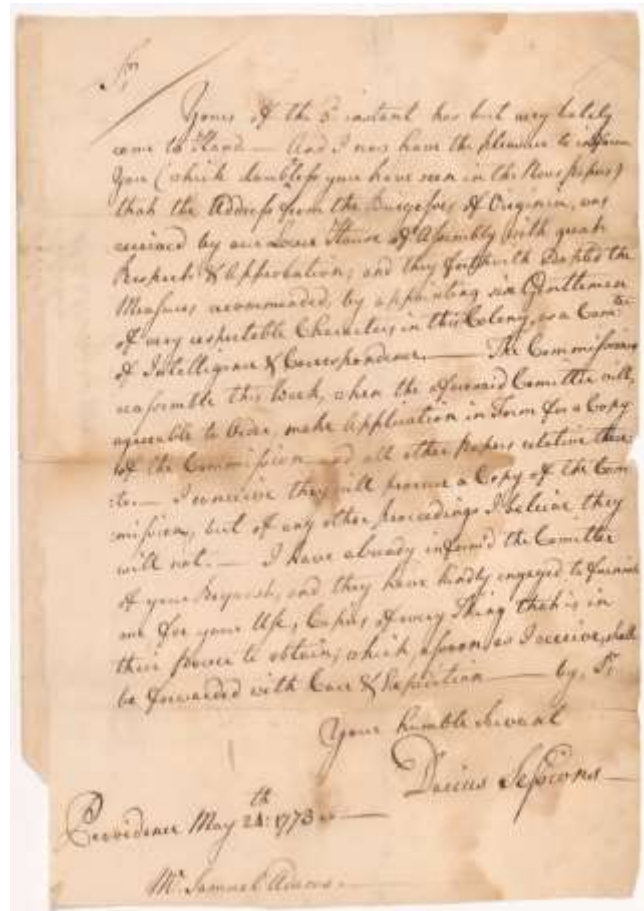 Sir,
Yours of the 3d instant has but very lately
come to Hand — And I now have the pleasure to inform
You (which doubtless you have seen in the News papers)
that the Address from the Burgesses of Virginia, was
received by our Lower House of Assembly with great
Respect & Approbation; and they forthwith Adopted the
Measures recommended, by appointing six Gentlemen
of very respectable Characters in this Colony, as a Comtee
of Intelligence & Correspondence. — The Commissioners
reassemble this Week, when the aforesaid Comittee will,
agreeable to Order, make Application in Form for a Copy
of the Commission and all other Papers relative there
to. — I conceive they will procure a Copy of the Com
mission, but of any other proceedings I believe they
will not. — I have already inform'd the Comittee
of your Request, and they have kindly engaged to furnish
me for your Use, Copies of every Thing that is in
their Power to obtain; which, as soon as I receive, shall
be forwarded with Care & Expedition — by, Sr,
Your humble Servant
Darius Sessions —
Providence May 24th: 1773 —
Mr. Samuel Adams. —